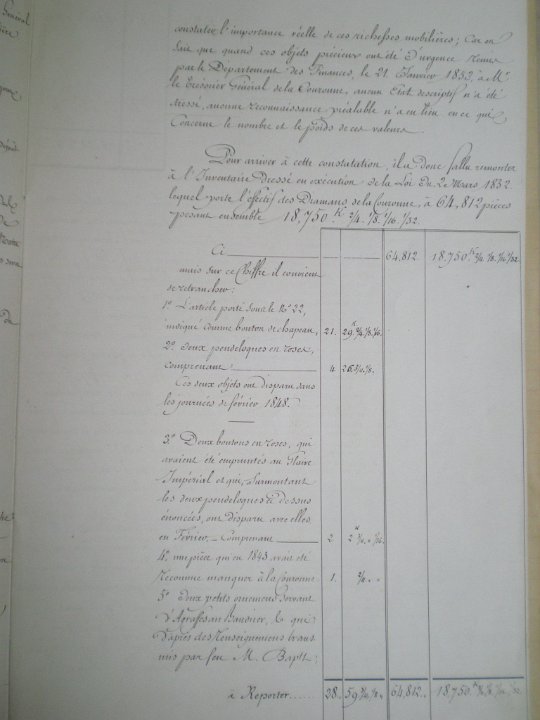 constater l'importance réelle de ces richesses mobilières; Car on
sait que quand ces objets précieux ont été d'urgence remis
par le Département des Finances, le 21 Janvier 1832, à Mr
le Trésorier Général de la Couronne, aucun État descriptif n'a été
dressé, aucune reconnaissance préalable n'a eu lieu en ce qui
Concerne le nombre et le poids de ces valeurs.
Pour arriver à cette constatation, il a donc fallu remonter
à l'Inventaire dressé en exécution de la Loi du 2 Mars 1832
lequel porte l'effectif des Diamans de la Couronne, à 64,812 pièces
pesant ensemble 18,750.K 2/4. 1/8. 1/16. 1/32.
Ci 64,812. 18,750.K 2/4. 1/8. 1/16. 1/32.
mais sur ce Chiffre il convient
de retrancher:
1° L'article porté sous le No 22,
indiqué comme bouton de chapeau, 21. 29.K
2° deux pendeloques en roses,
comprenant 4
Ces deux objets ont disparu dans
les journées de février 1848.
3° Deux boutons en roses, qui
avaient été empruntés au Glaive
Impérial et qui, surmontant
les deux pendeloques ci-dessus
énoncées, ont disparu avec elles,
en Février, - Comprenant 2
4° une pièce qui en 1843 avait été
reconnue manquer à la Couronne 1. 2/4
5° Deux petits ornemens servant
d'Agraffes au Baudrier, & qui
d'après des Renseignemens trans
mis par feu M. Bapst,
à Reporter 28. 59. 64,812. 18,750.K